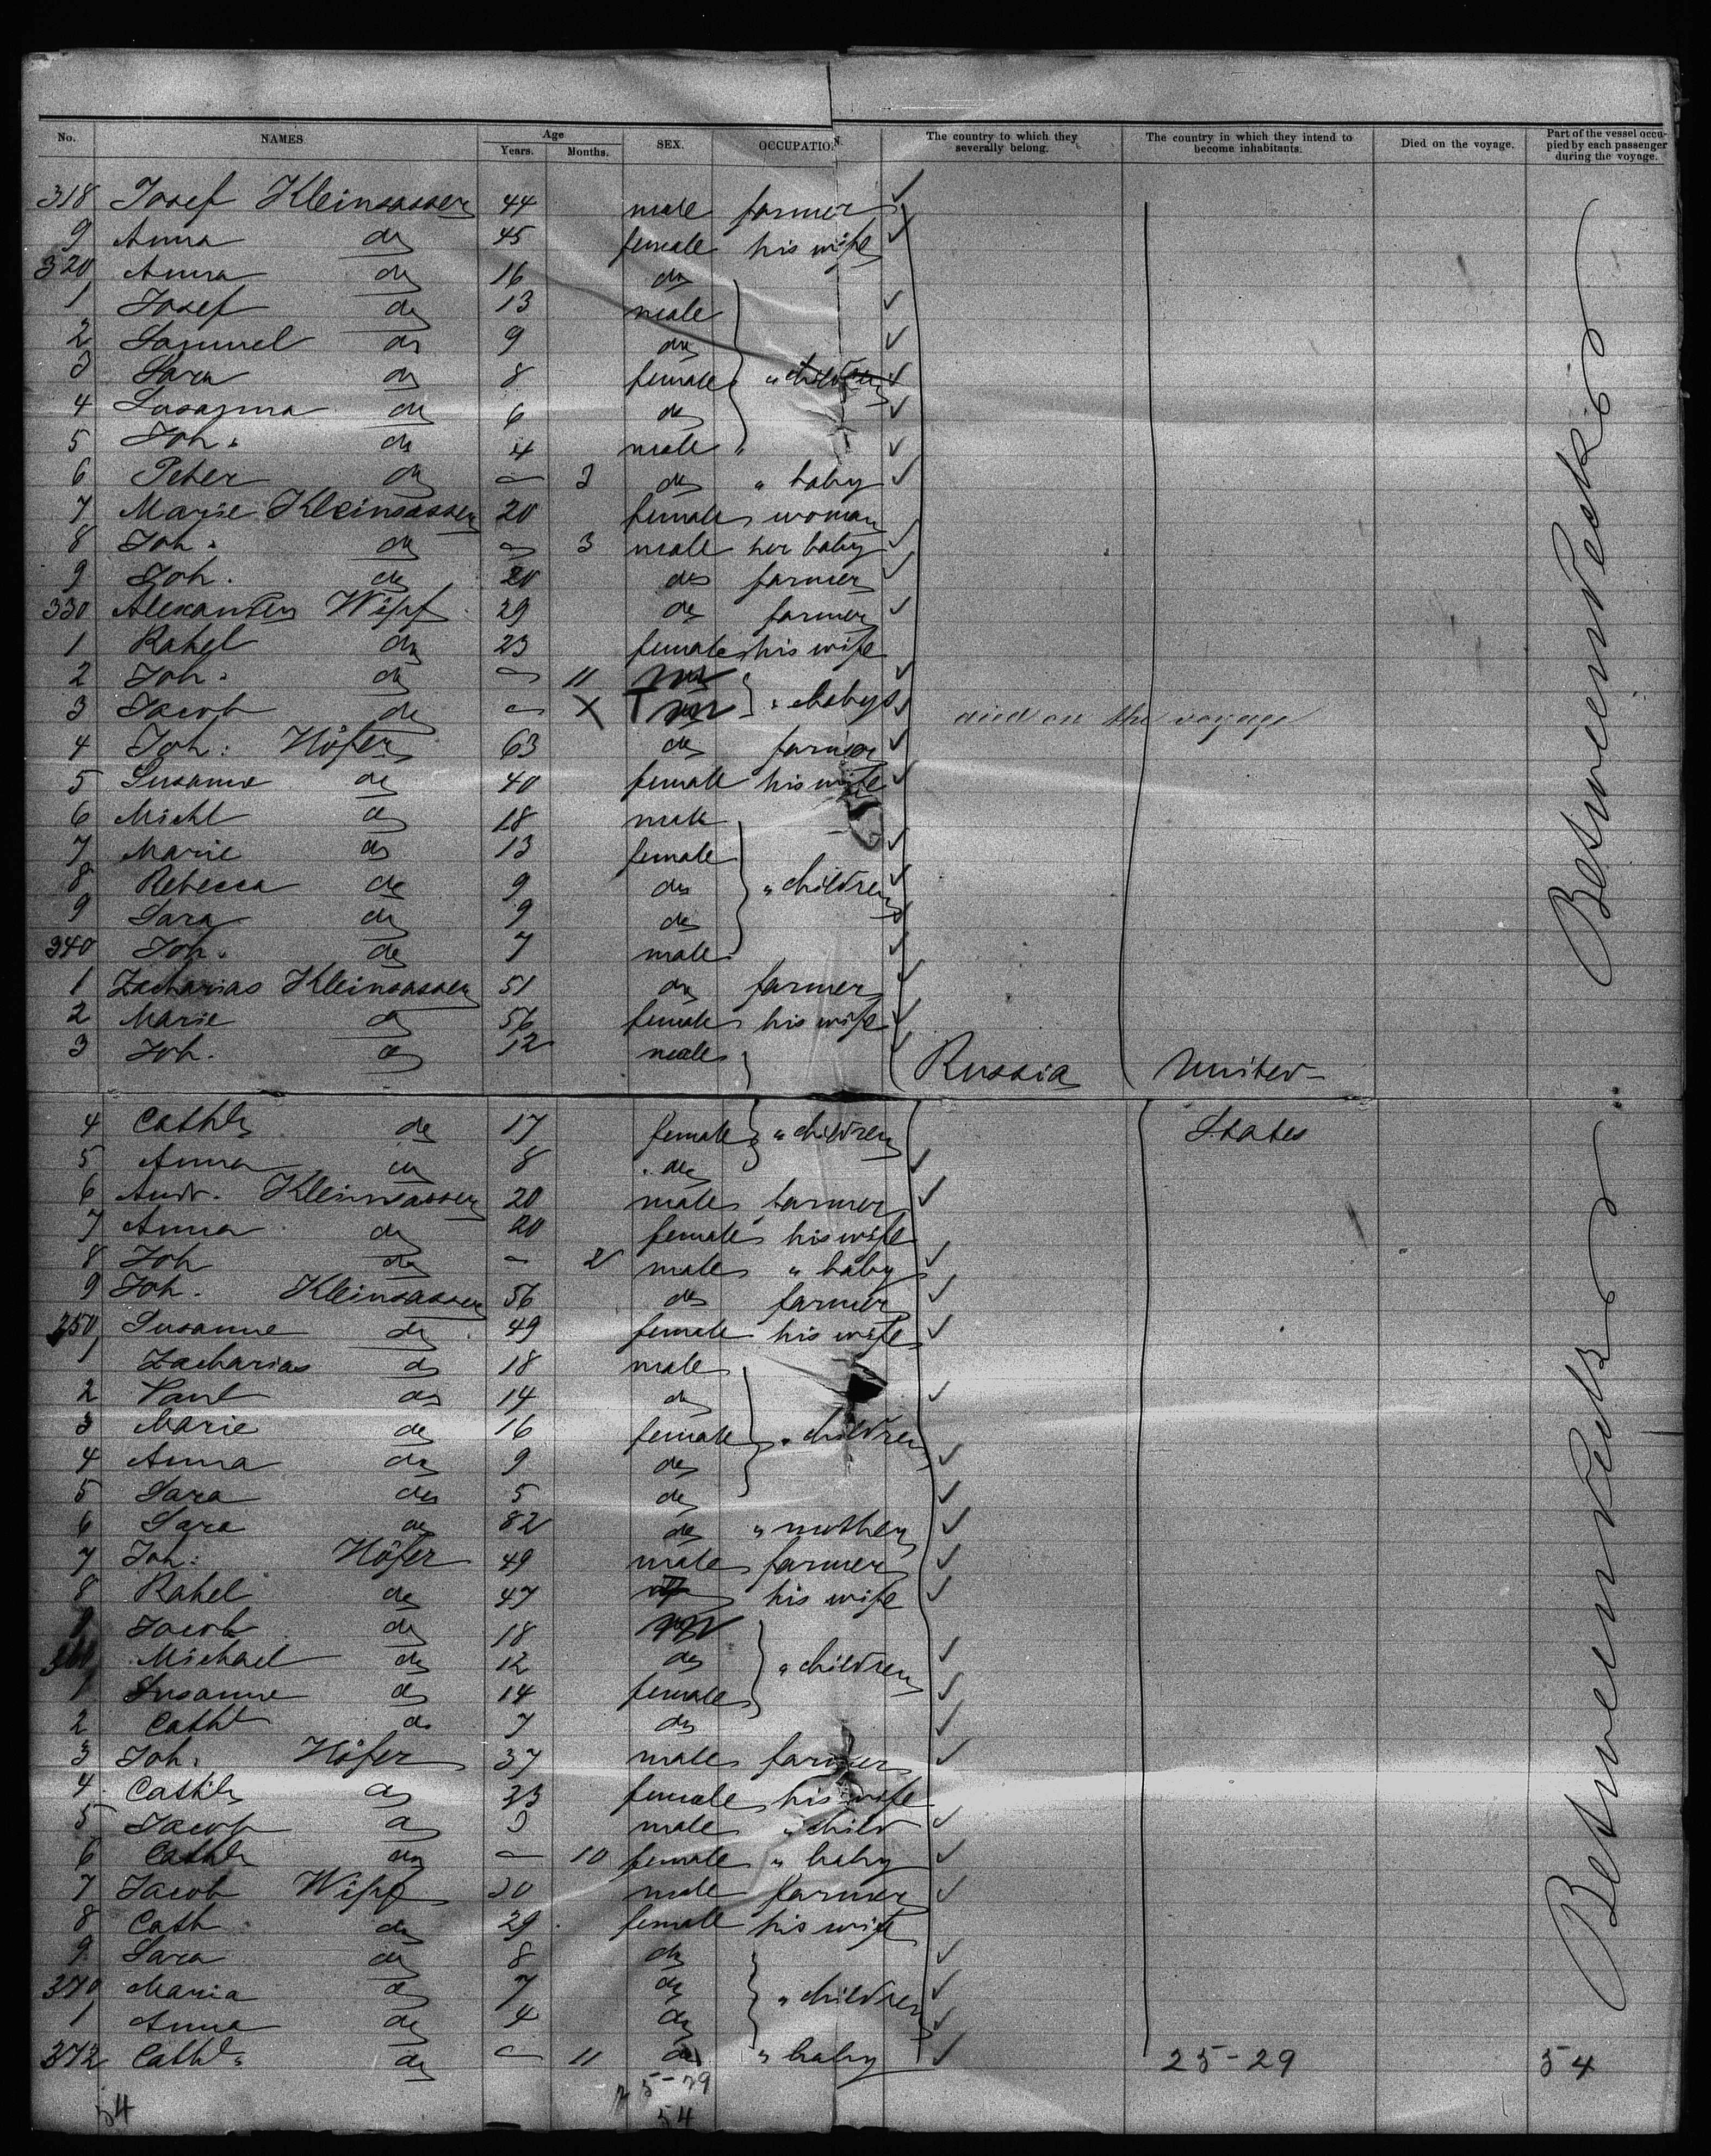 No. NAMES Age Years. Months. SEX. OCCUPATION. The country to which they severally belong. The country in which they intend to become inhabitants. Died on the voyage. Part of the vessel occupied by each passenger during the voyage.
318 Josef Kleinsasser 44 male farmer
9 Anna do 45 female his wife
320 Anna do 16 do
1 Josef do 13 male
2 Samuel do 9 do
3 Sara do 8 female " children
4 Susanna do 6 do
5 Joh. do 4 male "
6 Peter do — 3 do " baby
7 Marie Kleinsasser 20 female woman
8 Joh. do — 3 male her baby
9 Joh. do 20 do farmer
330 Alexander Wipf 29 do farmer
1 Rahel do 23 female his wife
2 Joh. do — 11 m
3 Jacob do — X m " babys died on the voyage
4 Joh. Höfer 63 do farmer
5 Susanne do 40 female his wife
6 Michl do 18 male
7 Marie do 13 female
8 Rebecca do 9 do " children
9 Sara do 9 do
340 Joh. do 7 male
1 Zacharias Kleinsasser 51 do farmer
2 Marie do 56 female his wife
3 Joh. do 12 male Russia United
4 Cathr do 17 female " children States
5 Anna do 8 do
6 Andr. Kleinsasser 20 male farmer
7 Anna do 20 female his wife
8 Joh do — 2 male " baby
9 Joh. Kleinsasser 56 do farmer
350 Susanne do 49 female his wife
1 Zacharias do 18 male
2 Paul do 14 do
3 Marie do 16 female " children
4 Anna do 9 do
5 Sara do 5 do
6 Sara do 82 do " mother
7 Joh: Höfer 49 male farmer
8 Rahel do 47 his wife
9 Jacob do 18 m
360 Michael do 12 do " children
1 Susanne do 14 female
2 Cathr do 7 do
3 Joh. Höfer 37 male farmer
4 Cathr do 23 female his wife
5 Jacob do 3 male " child
6 Cathr do — 10 female " baby
7 Jacob Wipf 30 male farmer
8 Cath do 29 female his wife
9 Sara do 8 do
370 Maria do 7 do " children
1 Anna do 4 do
372 Cathr. do — 11 do " baby 25-29 54
25-29
54 54
Between Decks
Between Decks